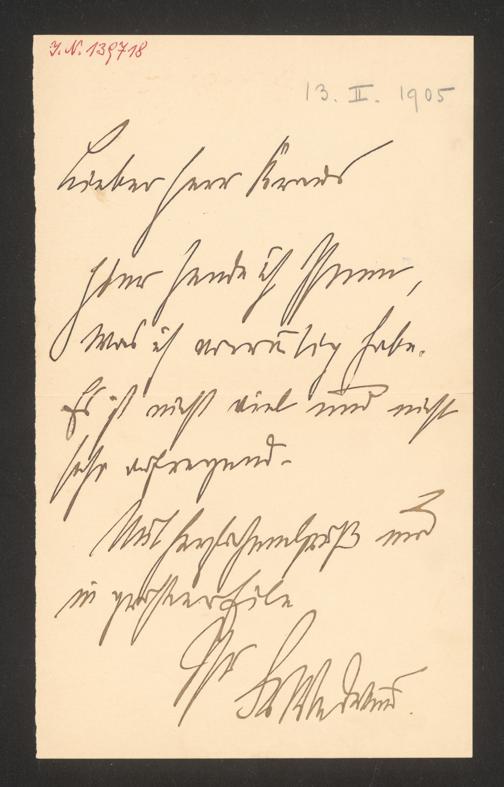 J. N. 139718
13. II. 1905
Lieber Herr Kraus
Hier sende ich Ihnen,
was ich vorrätig habe.
Es ist nicht viel und nicht
sehr aufregend.
Mit herzlichem Gruß und
in größter Eile
Ihr
FrWedekind.